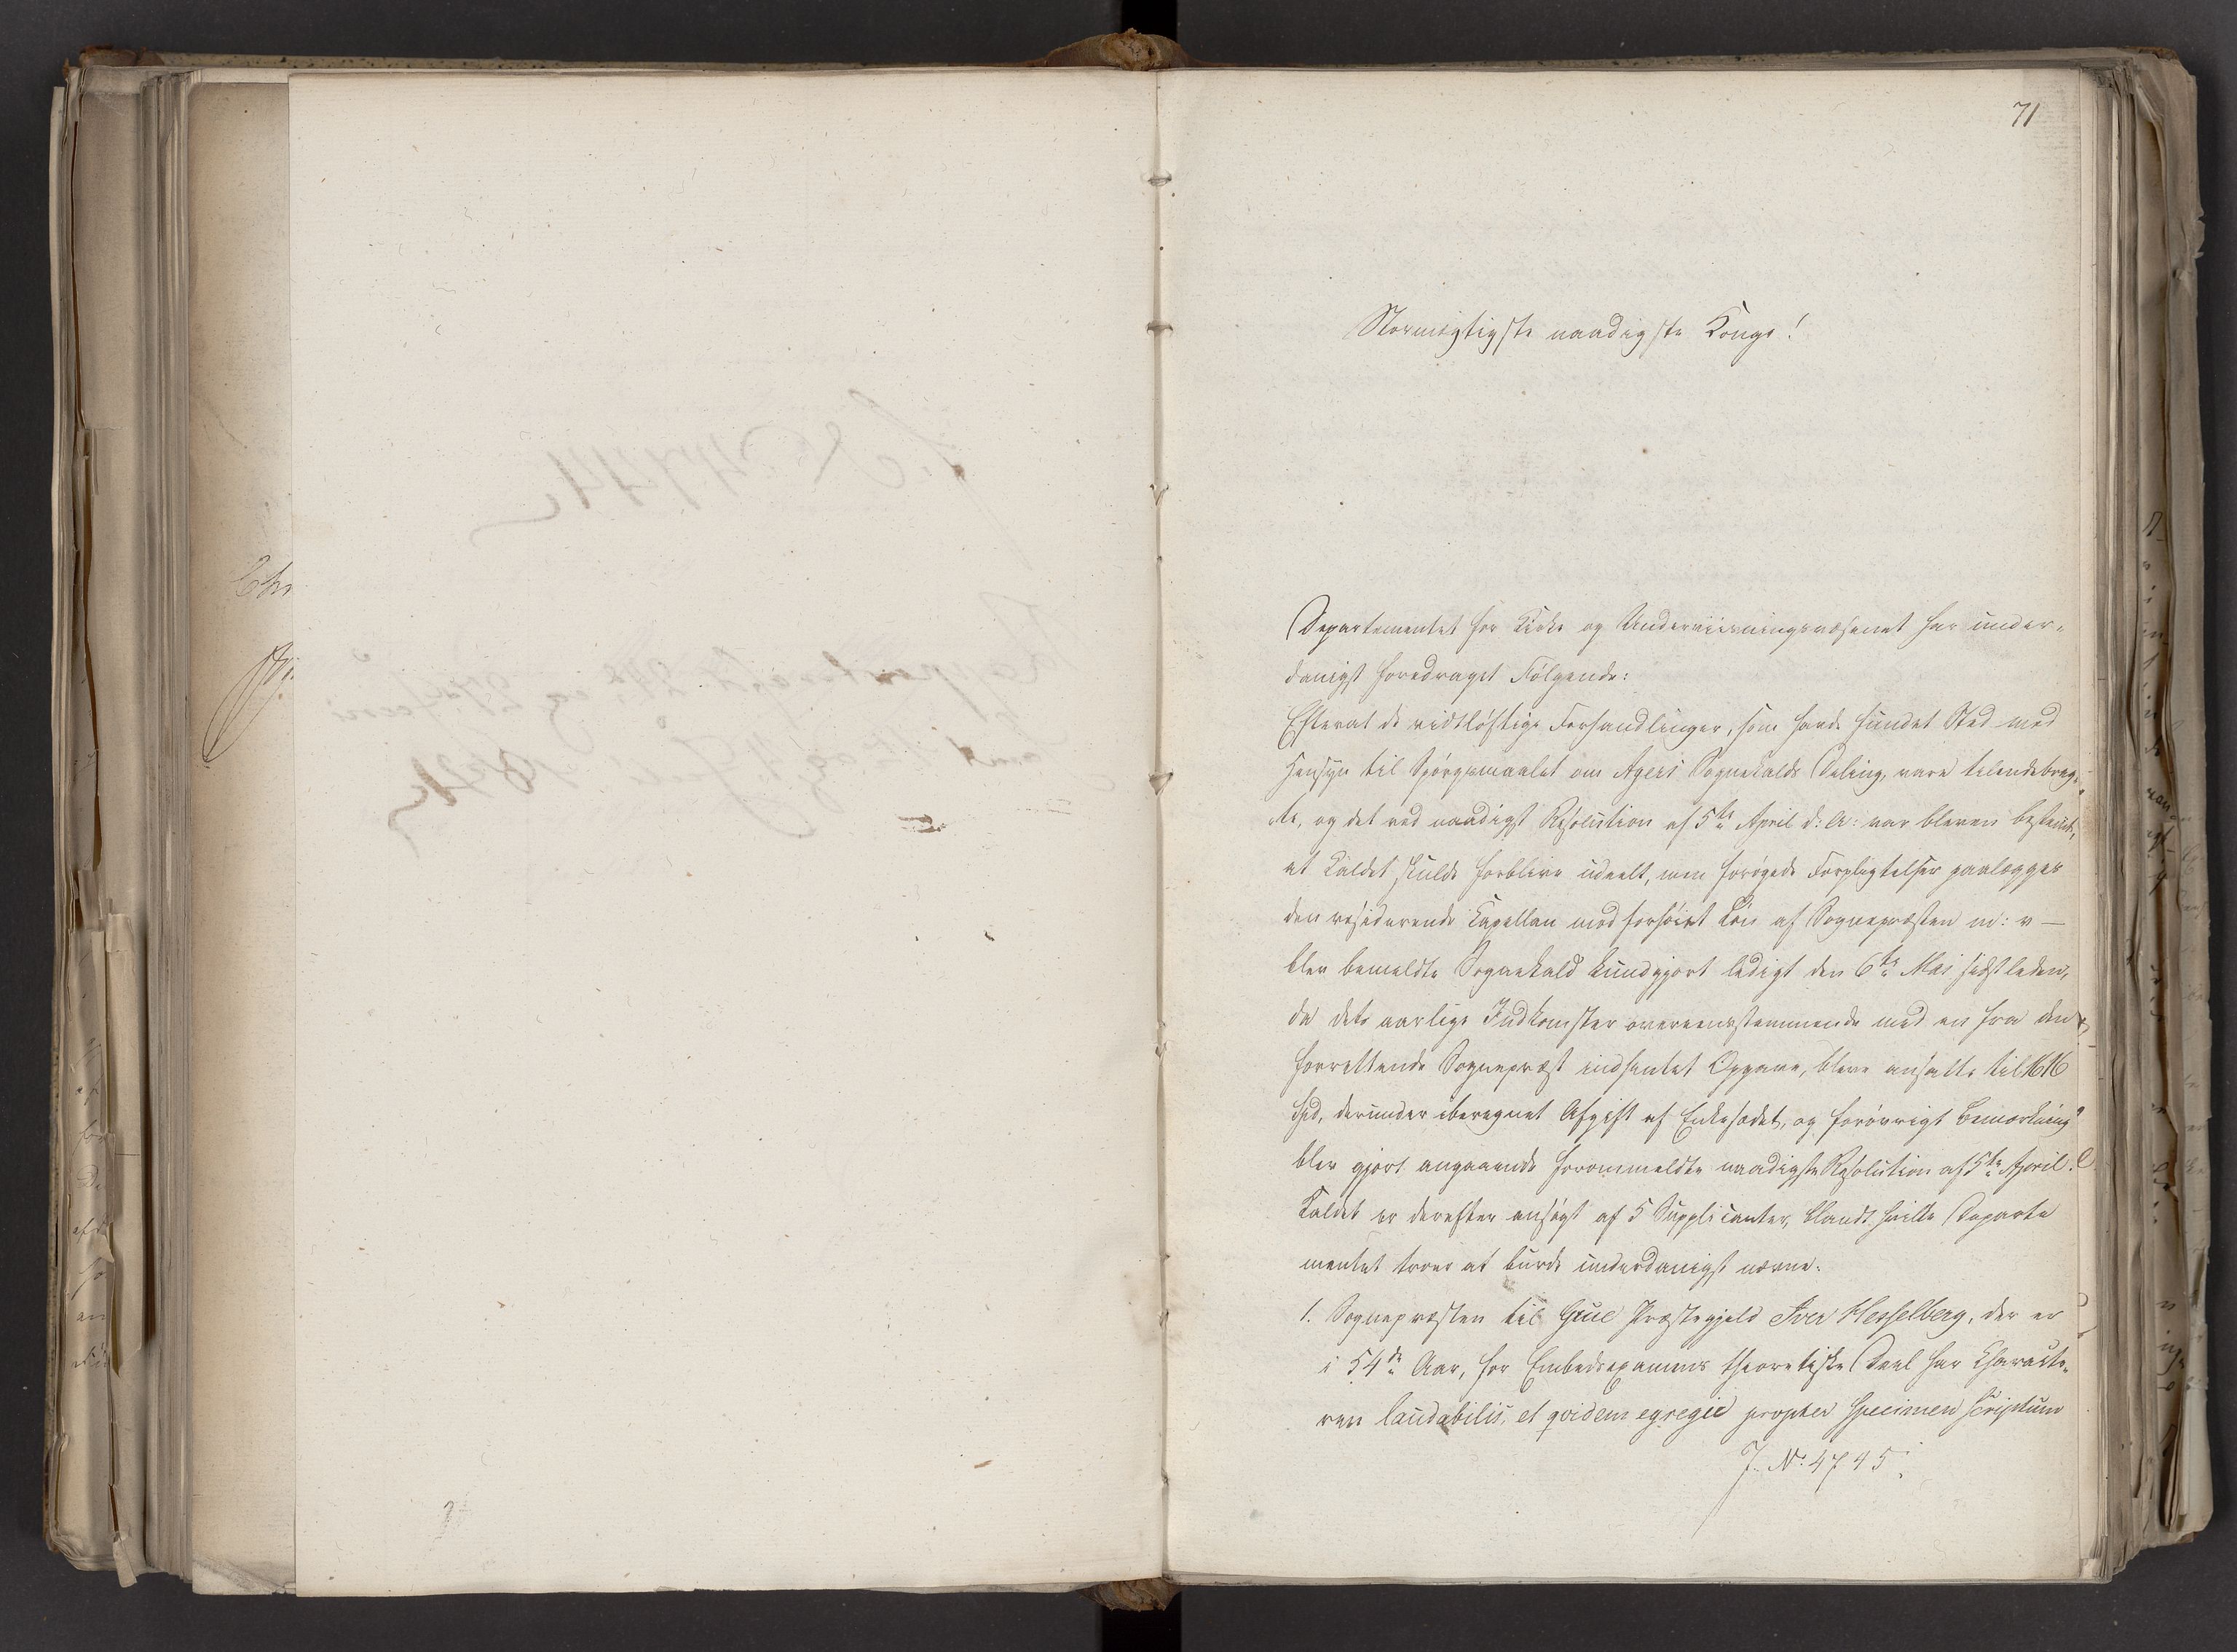 71
Stormægtigste naadigste Konge!
Departementet for Kirke og Underviisningsvæsenet har under-
danigst foredraget Følgende:
Efterat de vidtløftige Forhandlinger, som havde fundet Sted med
Hensyn til Spørgsmaalet om Agers Sognekalds Deling, vare tilendebrag-
te, og det ved naadigst Resolution af 5te April d: A: var bleven bestemt,
at Kaldet skulde forblive udeelt, men forøgede Forpligtelser paalægges
den residerende Kapellan mod forhøiet Løn af Sognepræsten m: v —
blev bemeldte Sognekald kundgjort ledigt den 6te Mai sidstleden,
da dets aarlige Indkomster overeensstemmende med en fra den
forrettende Sognepræst indhentet Opgave, bleve ansatte til 1616
Spd, derunder iberegnet Afgift af Enkesædet, og forøvrigt Bemærkning
blev gjort angaaende forommeldte naadigste Resolution af 5te April.
Kaldet er derefter ansøgt af 5 Supplicanter, blandt hvilke Departe
mentet troer at burde underdanigst nævne.
1. Sognepræsten til Grue Præstegjeld Iver Hesselberg, der er
i 54de Aar, for Embedsexamens theoretiske Deel har Characte-
ren laudabilis, et qvidem egregie propter specimen scriptum
J. No. 4745.